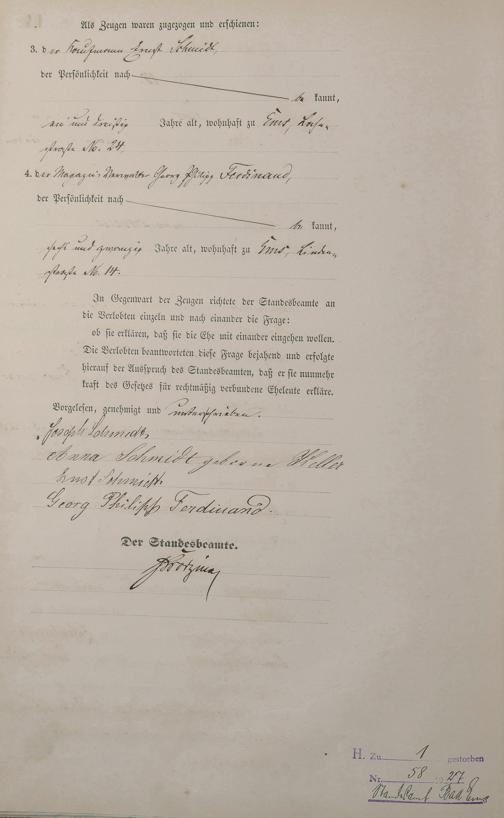 Als Zeugen waren zugezogen und erschienen:
3. der Kaufmann Ernst Schmidt,
der Persönlichkeit nach
be kannt,
ein und dreißig Jahre alt, wohnhaft zu Ems, Lahn-
straße No. 24.
4. der Magazin-Verwalter Georg Philipp Ferdinand,
der Persönlichkeit nach
be kannt,
sechs und zwanzig Jahre alt, wohnhaft zu Ems, Linden-
straße No. 14.
In Gegenwart der Zeugen richtete der Standesbeamte an
die Verlobten einzeln und nach einander die Frage:
ob sie erklären, daß sie die Ehe mit einander eingehen wollen.
Die Verlobten beantworteten diese Frage bejahend und erfolgte
hierauf der Ausspruch des Standesbeamten, daß er sie nunmehr
kraft des Gesetzes für rechtmäßig verbundene Eheleute erkläre.
Vorgelesen, genehmigt und unterschrieben.
Joseph Schmidt,
Anna Schmidt geborene Keller
Ernst Schmidt
Georg Philipp Ferdinand.
Der Standesbeamte.
H. Zu 1 gestorben
Nr. 58 1927
Standesamt Bad Ems